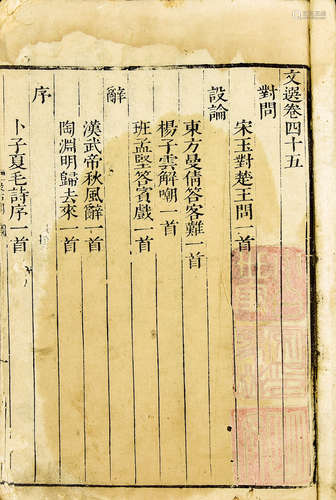 文選卷四十五
對問
宋玉對楚王問一首
設論
東方曼倩答客難一首
楊子雲解嘲一首
班孟堅答賓戲一首
辭
漢武帝秋風辭一首
陶淵明歸去來一首
序
卜子夏毛詩序一首